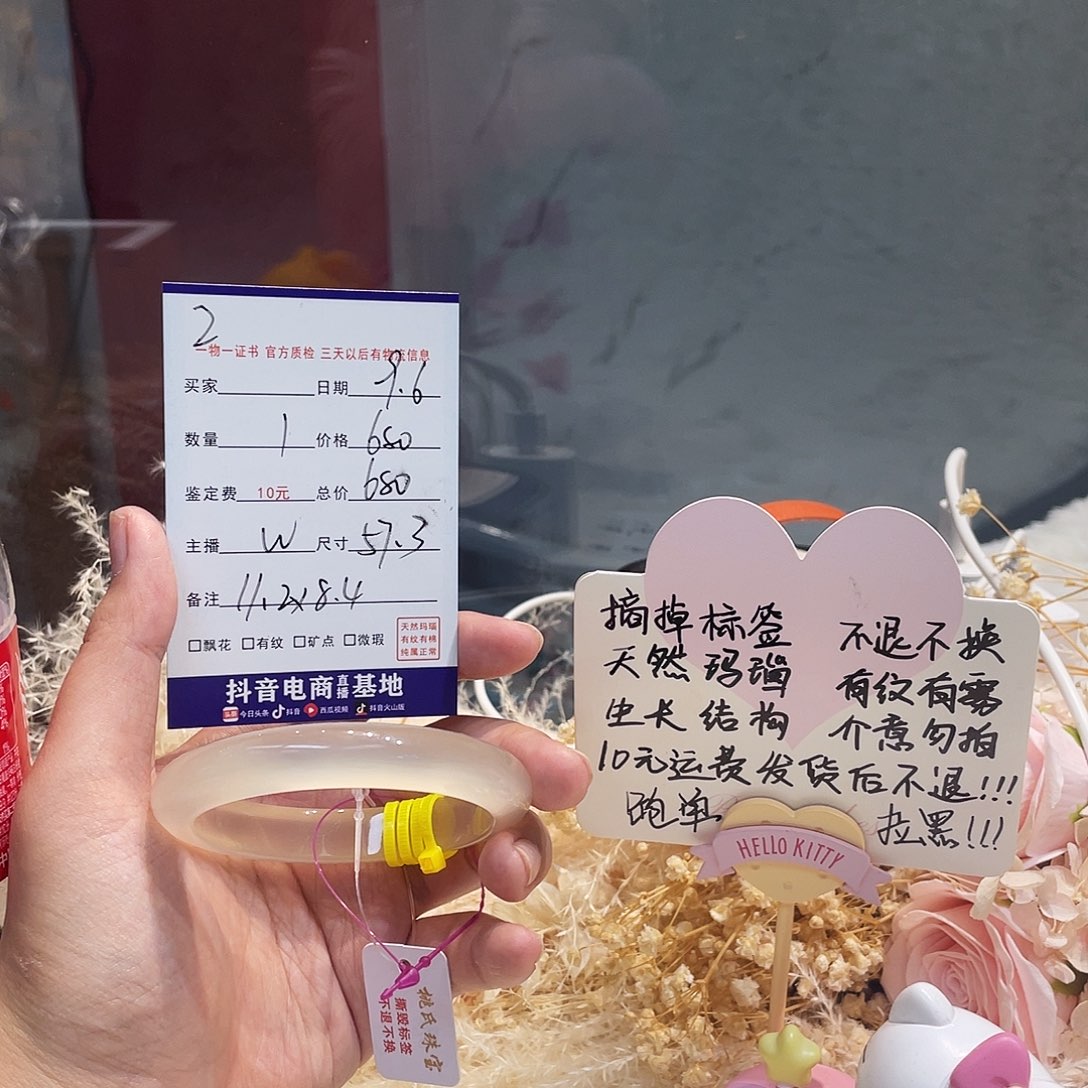 2
一物一证书 官方质检 三天以后有物流信息
买家 日期 9.6
数量 1 价格 680
鉴定费 10元 总价 680
主播 W 尺寸 57.3
备注 11.2x8.4
□飘花 □有纹 □矿点 □微瑕
天然玛瑙
有纹有棉
纯属正常
抖音电商直播基地
头条 今日头条 抖音 西瓜视频 抖音火山版
摘掉标签 不退不换
天然玛瑙 有纹有雾
生长结构 介意勿拍
10元运费发货后不退!!!
跑单 拉黑!!!
HELLO KITTY
桃氏珠宝
撕毁标签
不退不换